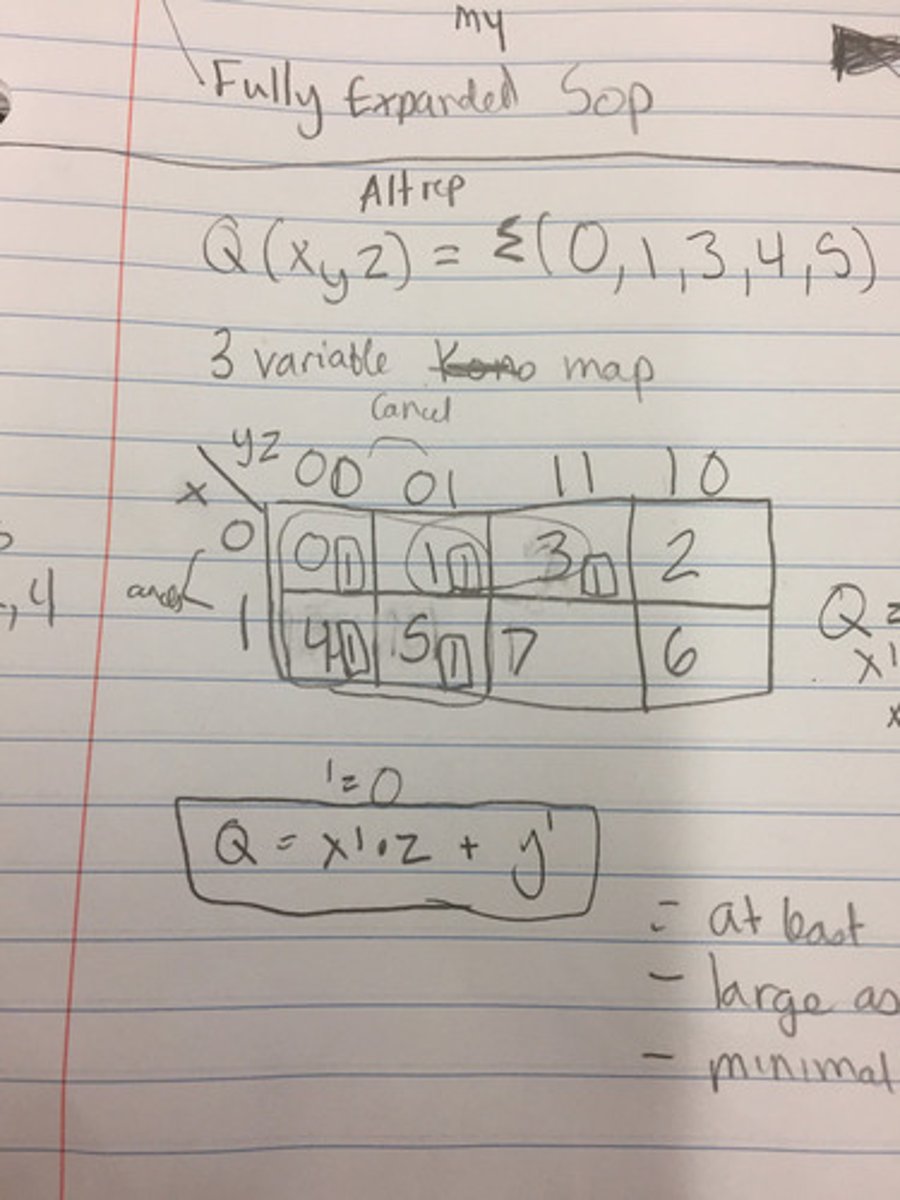 my
Fully Expanded Sop
Alt rep
Q(xyz) = Σ(0,1,3,4,5)
3 variable map
Cancel
yz 00 01 11 10
x
0 0 1 1 1 3 1 2
cancel
, 4
1 4 1 5 1 7 6
Q =
x'
x
' = 0
Q = x'•z + y'
= at least
- large as
- minimal